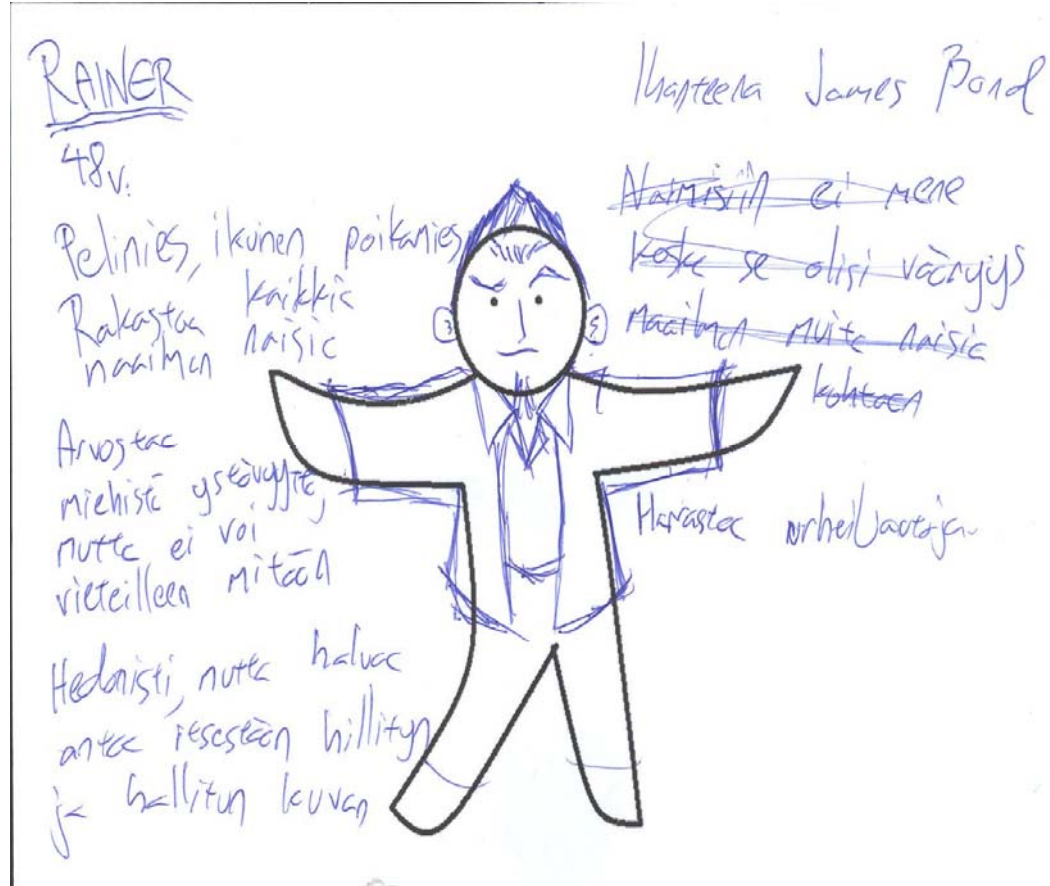 RAINER
48v.
Pelinies, ikuinen poikamies,
Rakastaa kaikkia
maailman naisia
Arvostaa
miehistä ystävyyttä,
mutta ei voi
vieteilleen mitään
Hedonisti, mutta haluaa
antaa itsestään hillityn
ja hallitun kuvan
Ihanteena James Bond
Naimisiin ei mene
koska se olisi vääryys
maailman muita naisia
kohtaan
Harrastaa urheiluautoja